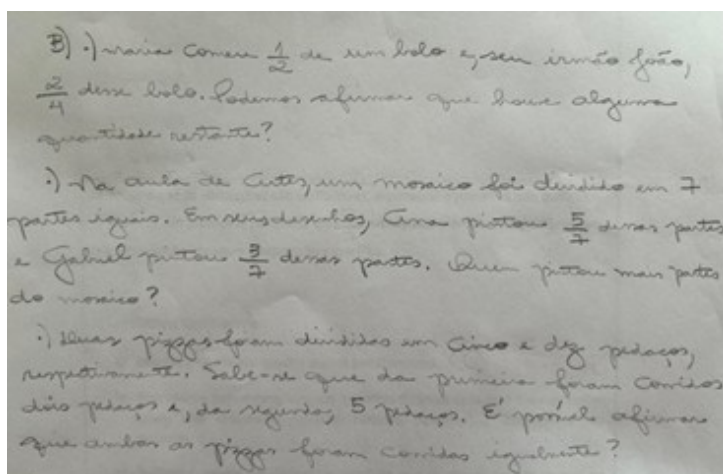 B) ·) Maria comeu 1/2 de um bolo e, seu irmão João,
2/4 desse bolo. Podemos afirmar que houve alguma
quantidade restante?
·) Na aula de Artes, um mosaico foi dividido em 7
partes iguais. Em seus desenhos, Ana pintou 5/7 dessas partes
e Gabriel pintou 3/7 dessas partes. Quem pintou mais partes
do mosaico?
·) Duas pizzas foram divididas em cinco e dez pedaços,
respectivamente. Sabe-se que da primeira foram comidos
dois pedaços e, da segunda, 5 pedaços. É possível afirmar
que ambas as pizzas foram comidas igualmente?